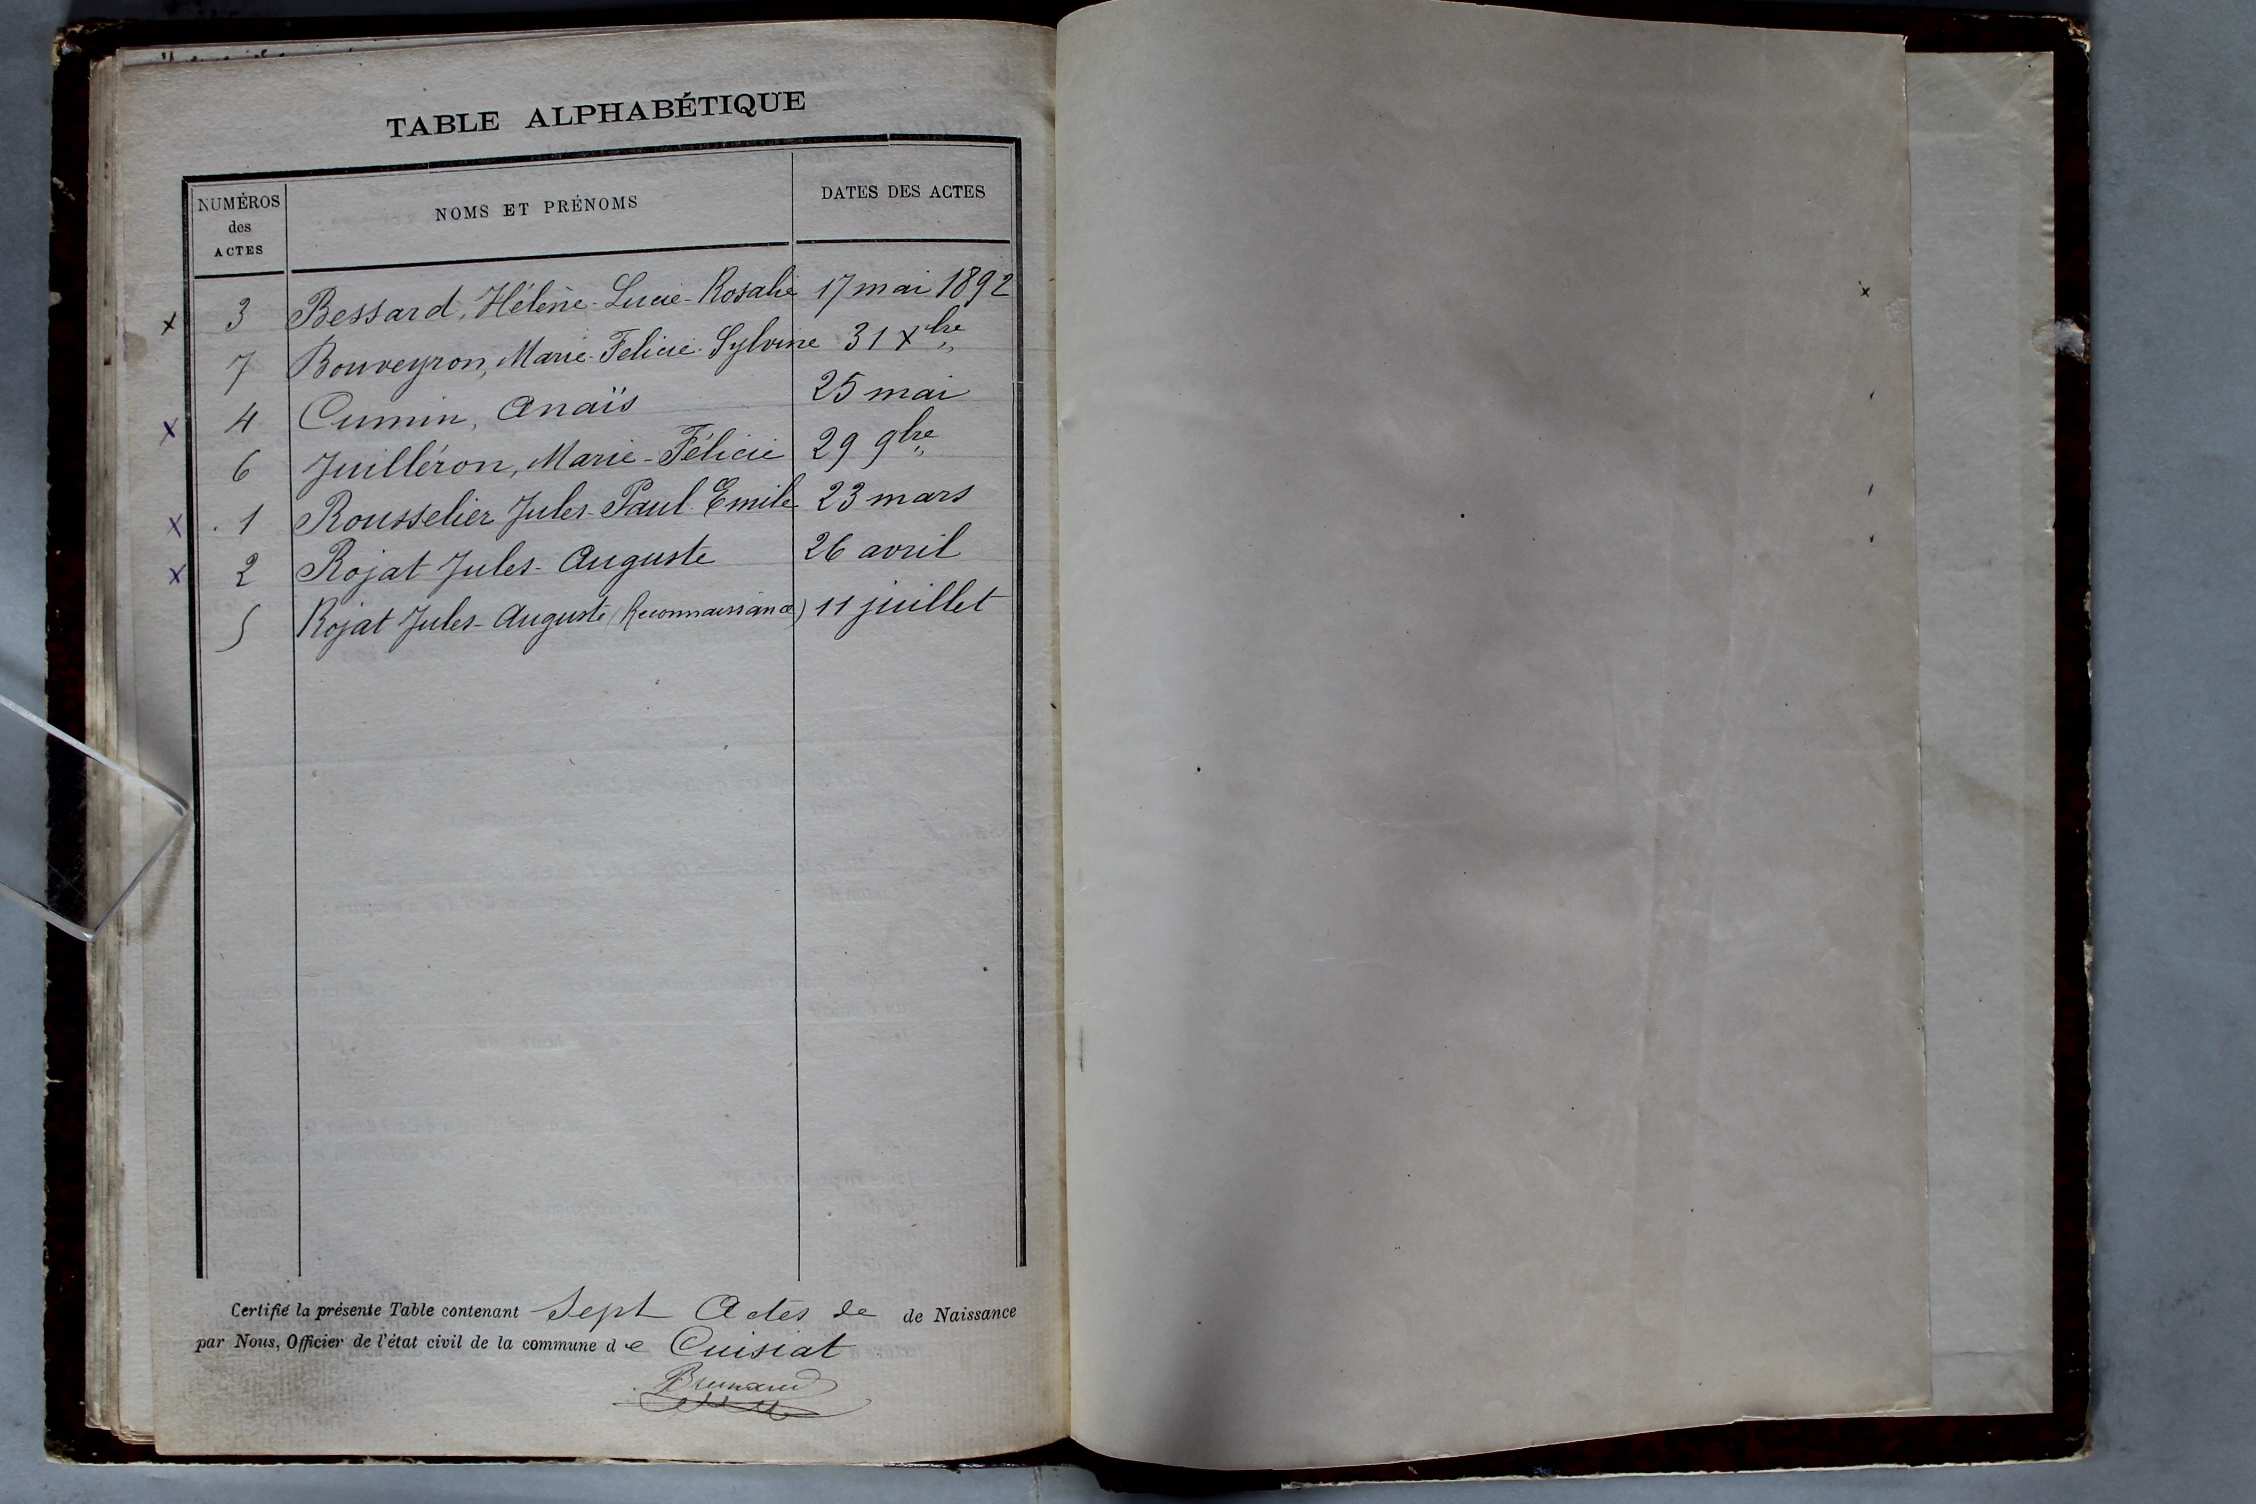 TABLE ALPHABÉTIQUE
NUMÉROS des ACTES
NOMS ET PRÉNOMS
DATES DES ACTES
x 3 Bessard, Hélène-Lucie-Rosalie 17 mai 1892
7 Bouveyron, Marie-Félicie-Sylvine 31 Xbre
x 4 Cumin, Anaïs 25 mai
6 Juilléron, Marie-Félicie 29 9bre
x 1 Rousselier Jules-Paul-Emile 23 mars
x 2 Rojat Jules-Auguste 26 avril
5 Rojat Jules-Auguste (Reconnaissance) 11 juillet
Certifié la présente Table contenant Sept Actes de de Naissance
par Nous, Officier de l'état civil de la commune de Cuisiat